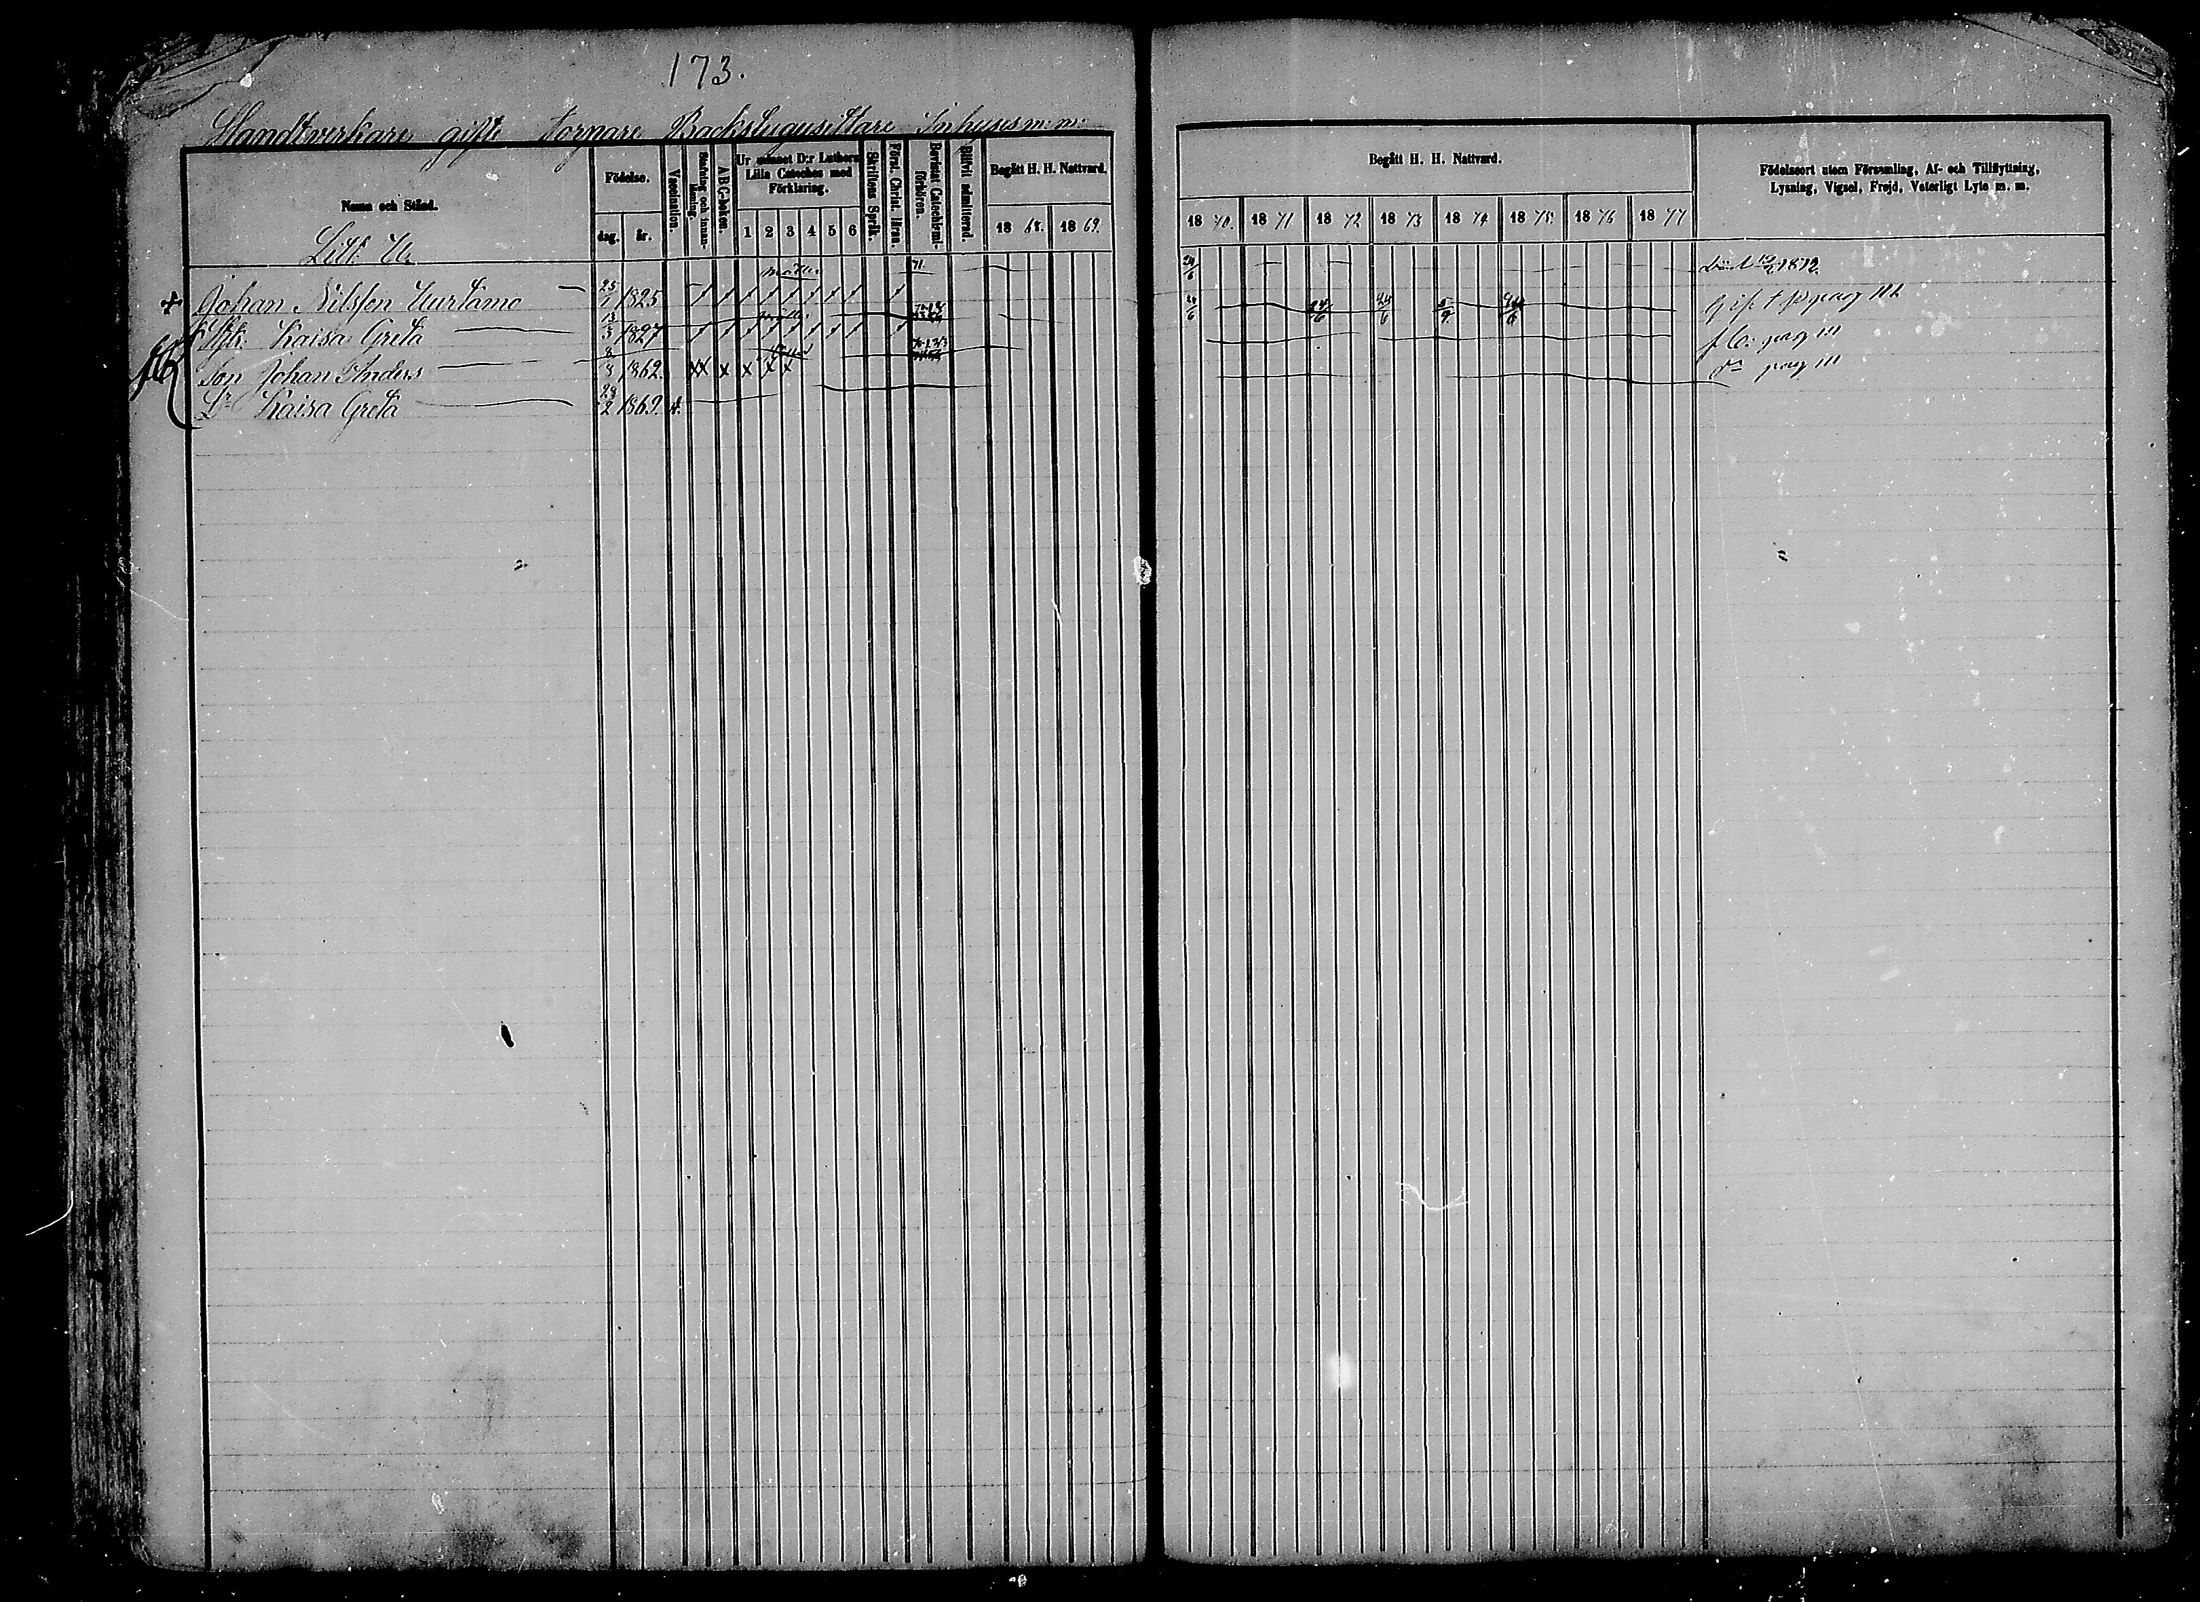 173.
Handtverkare gifte Torpare Backstugusittare Inhyses m: m:
Namn och Stånd.
Födelse.
dag. år.
Vaccination.
Stafning och innanläsning.
A B C-boken.
Ur minnet D:r Luthers Lilla Cateches med Förklaring.
1 2 3 4 5 6
Skriftens Språk.
Först. Christ. läran.
Bevistat Catechismiförhören.
Blifvit admitterad.
Begått H. H. Nattvard.
18 68. 18 69.
Begått H. H. Nattvard.
18 70. 18 71 18 72 18 73 18 74 18 75 18 76 18 77
Födelseort utom Församling, Af- och Tillflyttning,
Lysning, Vigsel, Frejd, Veterligt Lyte m. m.
Litt. U.
+ Johan Nilsson 25/1 1825 71 24/6 Död 1872
Kaisa Greta 13/3 1827 24/6 24/6 24/6 5/9 24/6 gift pag 111
Son Johan Anders 8/8 1862. x x x x x x pag 111
Dr Kaisa Greta 28/2 1869. pag 111